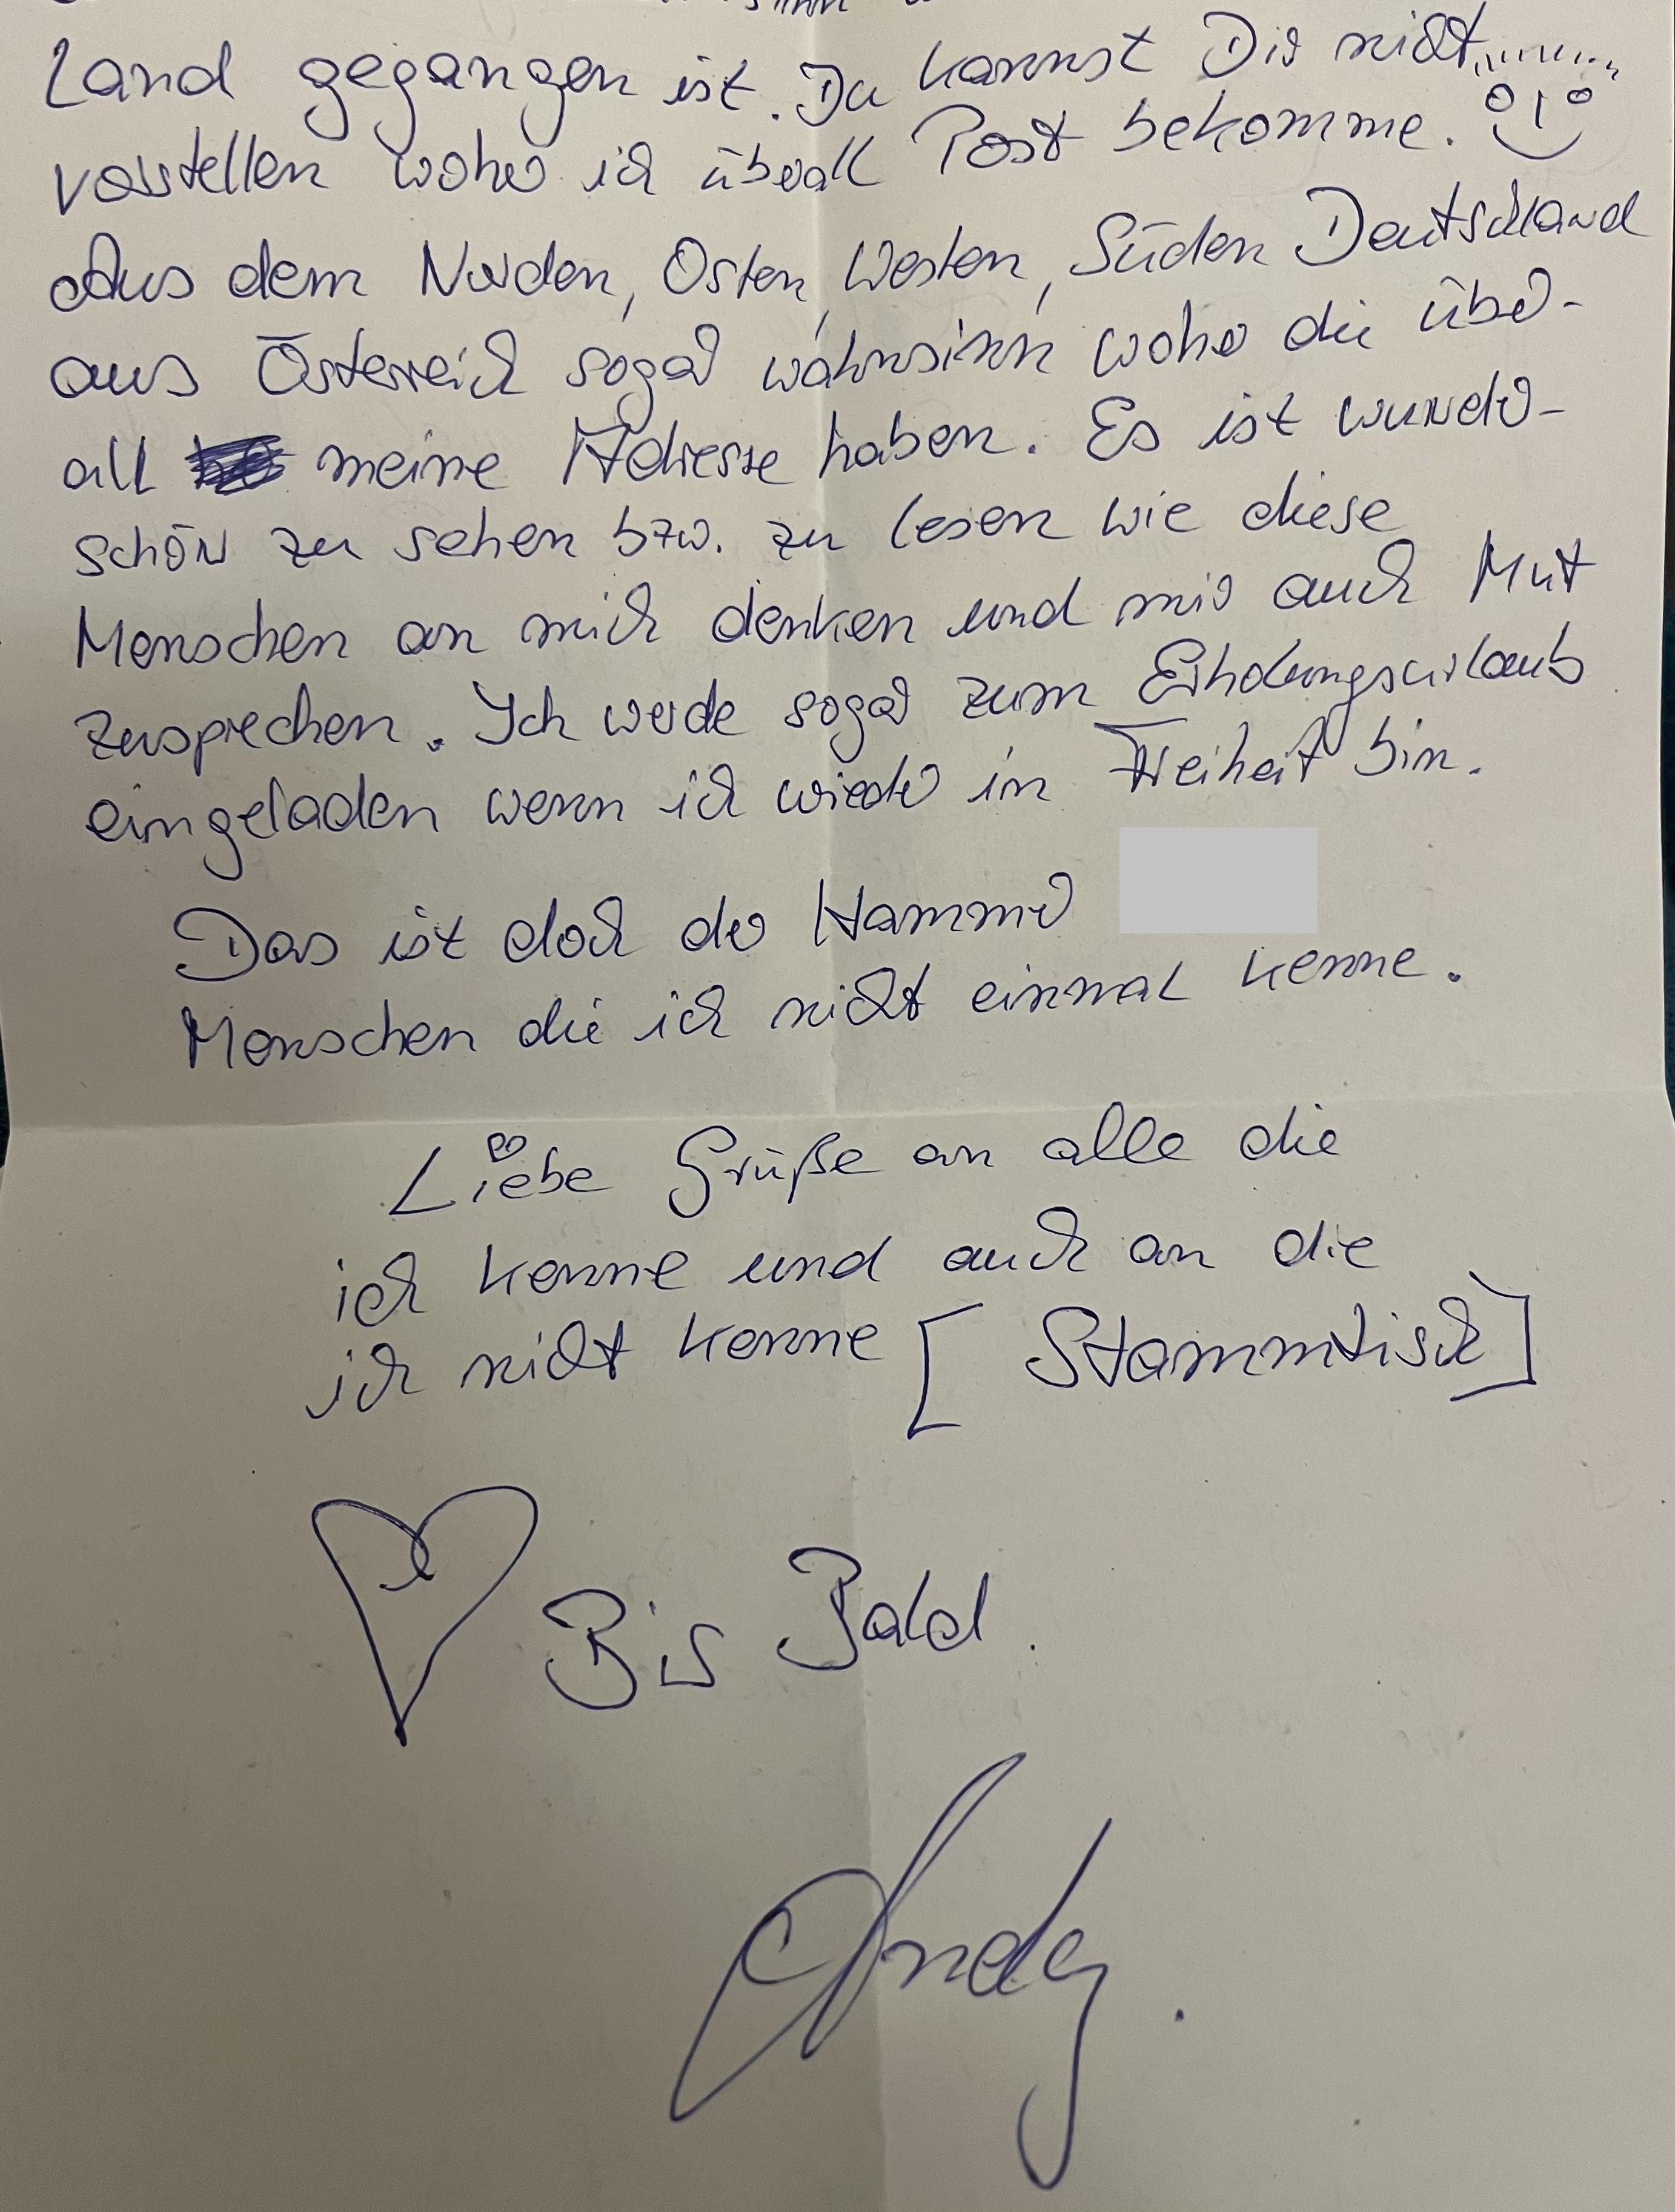 Land gegangen ist. Du kannst Dir nicht.........
vorstellen woher ich überall Post bekomme.
Aus dem Norden, Osten, Westen, Süden Deutschland
aus Österreich sogar wahnsinn woher die über-
all meine Adresse haben. Es ist wunder-
schön zu sehen bzw. zu lesen wie diese
Menschen an mich denken und mir auch Mut
zusprechen. Ich werde sogar zum Erholungsurlaub
eingeladen wenn ich wieder in Freiheit bin.
Das ist doch der Hammer
Menschen die ich nicht einmal kenne.
Liebe Grüße an alle die
ich kenne und auch an die
ich nicht kenne [ Stammtisch]
Bis Bald.
Andy.